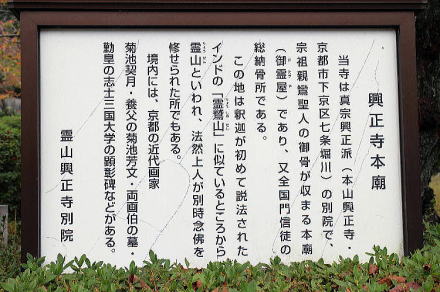 興正寺本廟
当寺は真宗興正派（本山興正寺・
京都市下京区七条堀川）の別院で、
宗祖親鸞聖人の御骨が収まる本廟
（御霊屋）であり、又全国門信徒の
総納骨所である。
この地は釈迦が初めて説法された
インドの「霊鷲山」に似ているところから
霊山といわれ、法然上人が別時念佛を
修せられた所でもある。
境内には、京都の近代画家
菊池契月・養父の菊池芳文・両画伯の墓・
勤皇の志士三国大学の顕彰碑などがある。
霊山興正寺別院